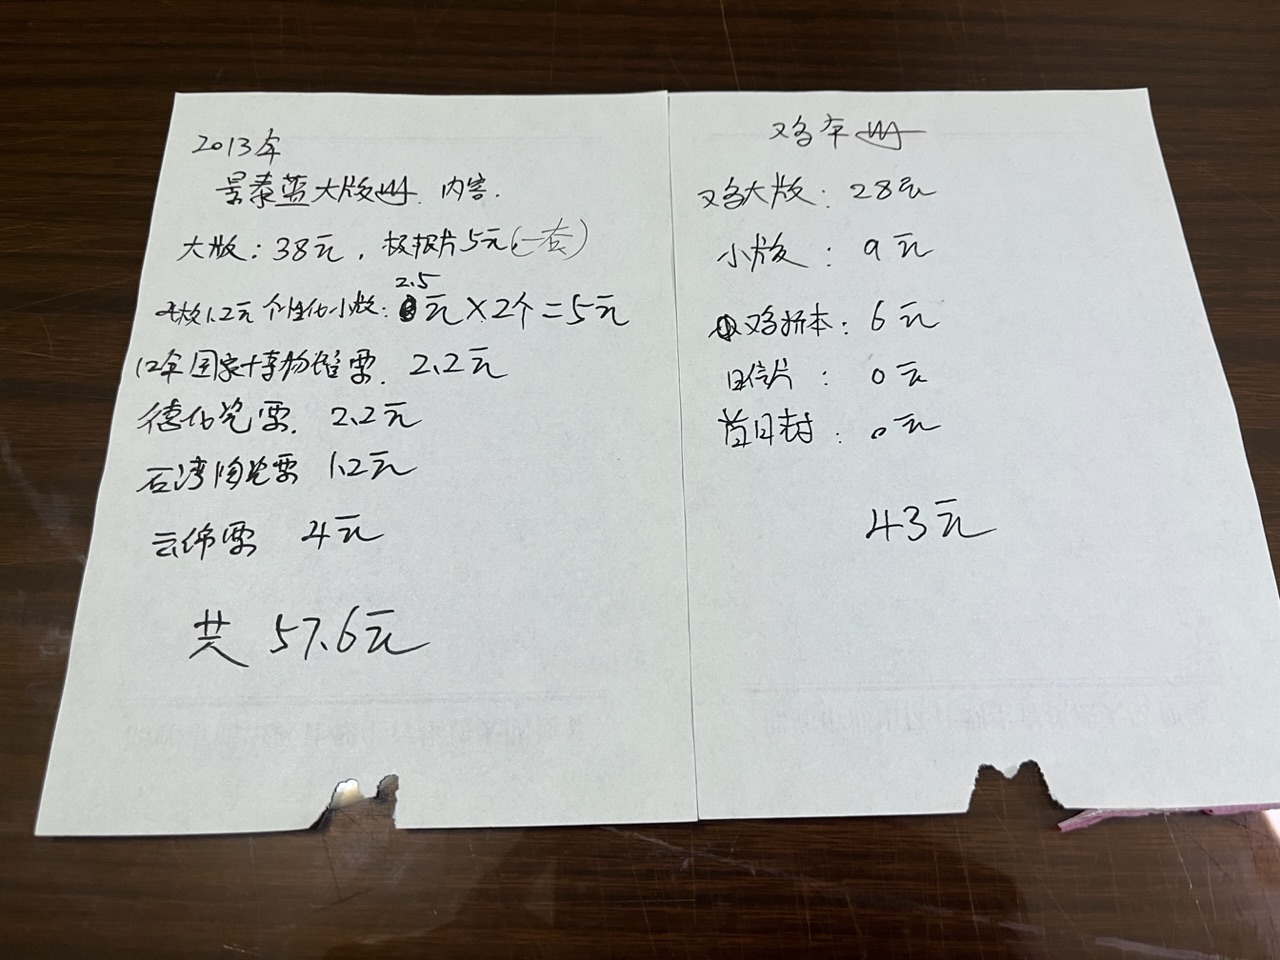 2013年
景泰蓝大版册. 内容.
大版: 38元, 极限片5元(一套)
2.5
版1.2元 个性化小版: 元×2个=5元
12年国家博物馆票. 2.2元
德化瓷票. 2.2元
石湾陶瓷票 1.2元
云锦票 4元
共 57.6元
鸡年册
鸡大版: 28元
小版: 9元
鸡折本: 6元
明信片: 0元
首日封: 0元
43元